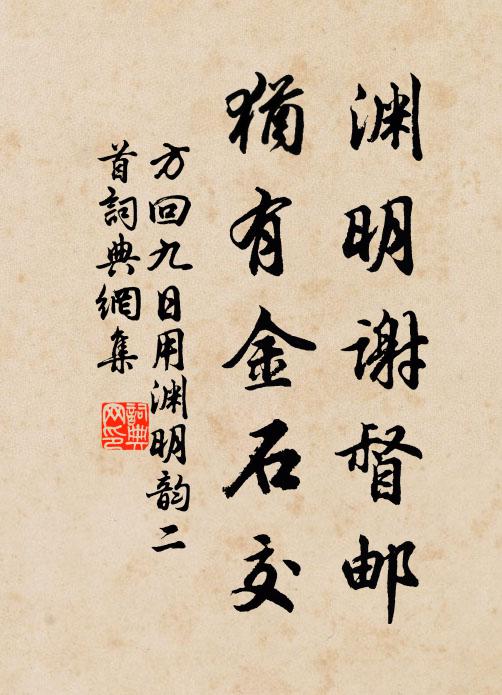 渊明谢督邮
猶有金石交
方回九日用渊明韵二
首詞典網集
詞典
网印